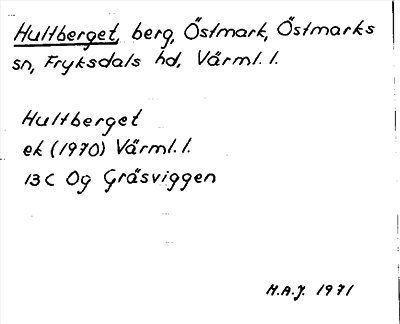 Hultberget, berg, Östmark, Östmarks
sn, Fryksdals hd, Värml. l.
Hultberget
ek (1970) Värml. l.
13C 0g Gräsviggen
H.A.J. 1971